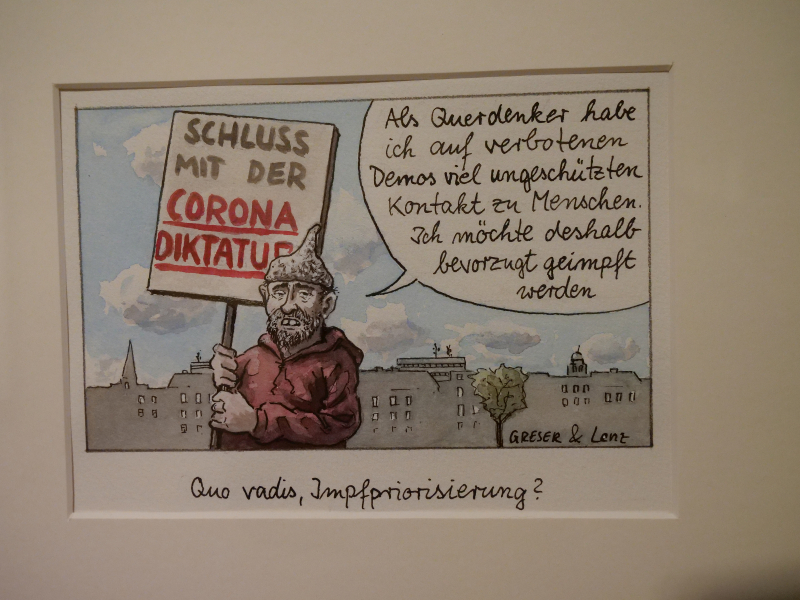 SCHLUSS
MIT DER
CORONA
DIKTATUR
Als Querdenker habe
ich auf verbotenen
Demos viel ungeschützten
Kontakt zu Menschen.
Ich möchte deshalb
bevorzugt geimpft
werden
GRESER & Lenz
Quo vadis, Impfpriorisierung?